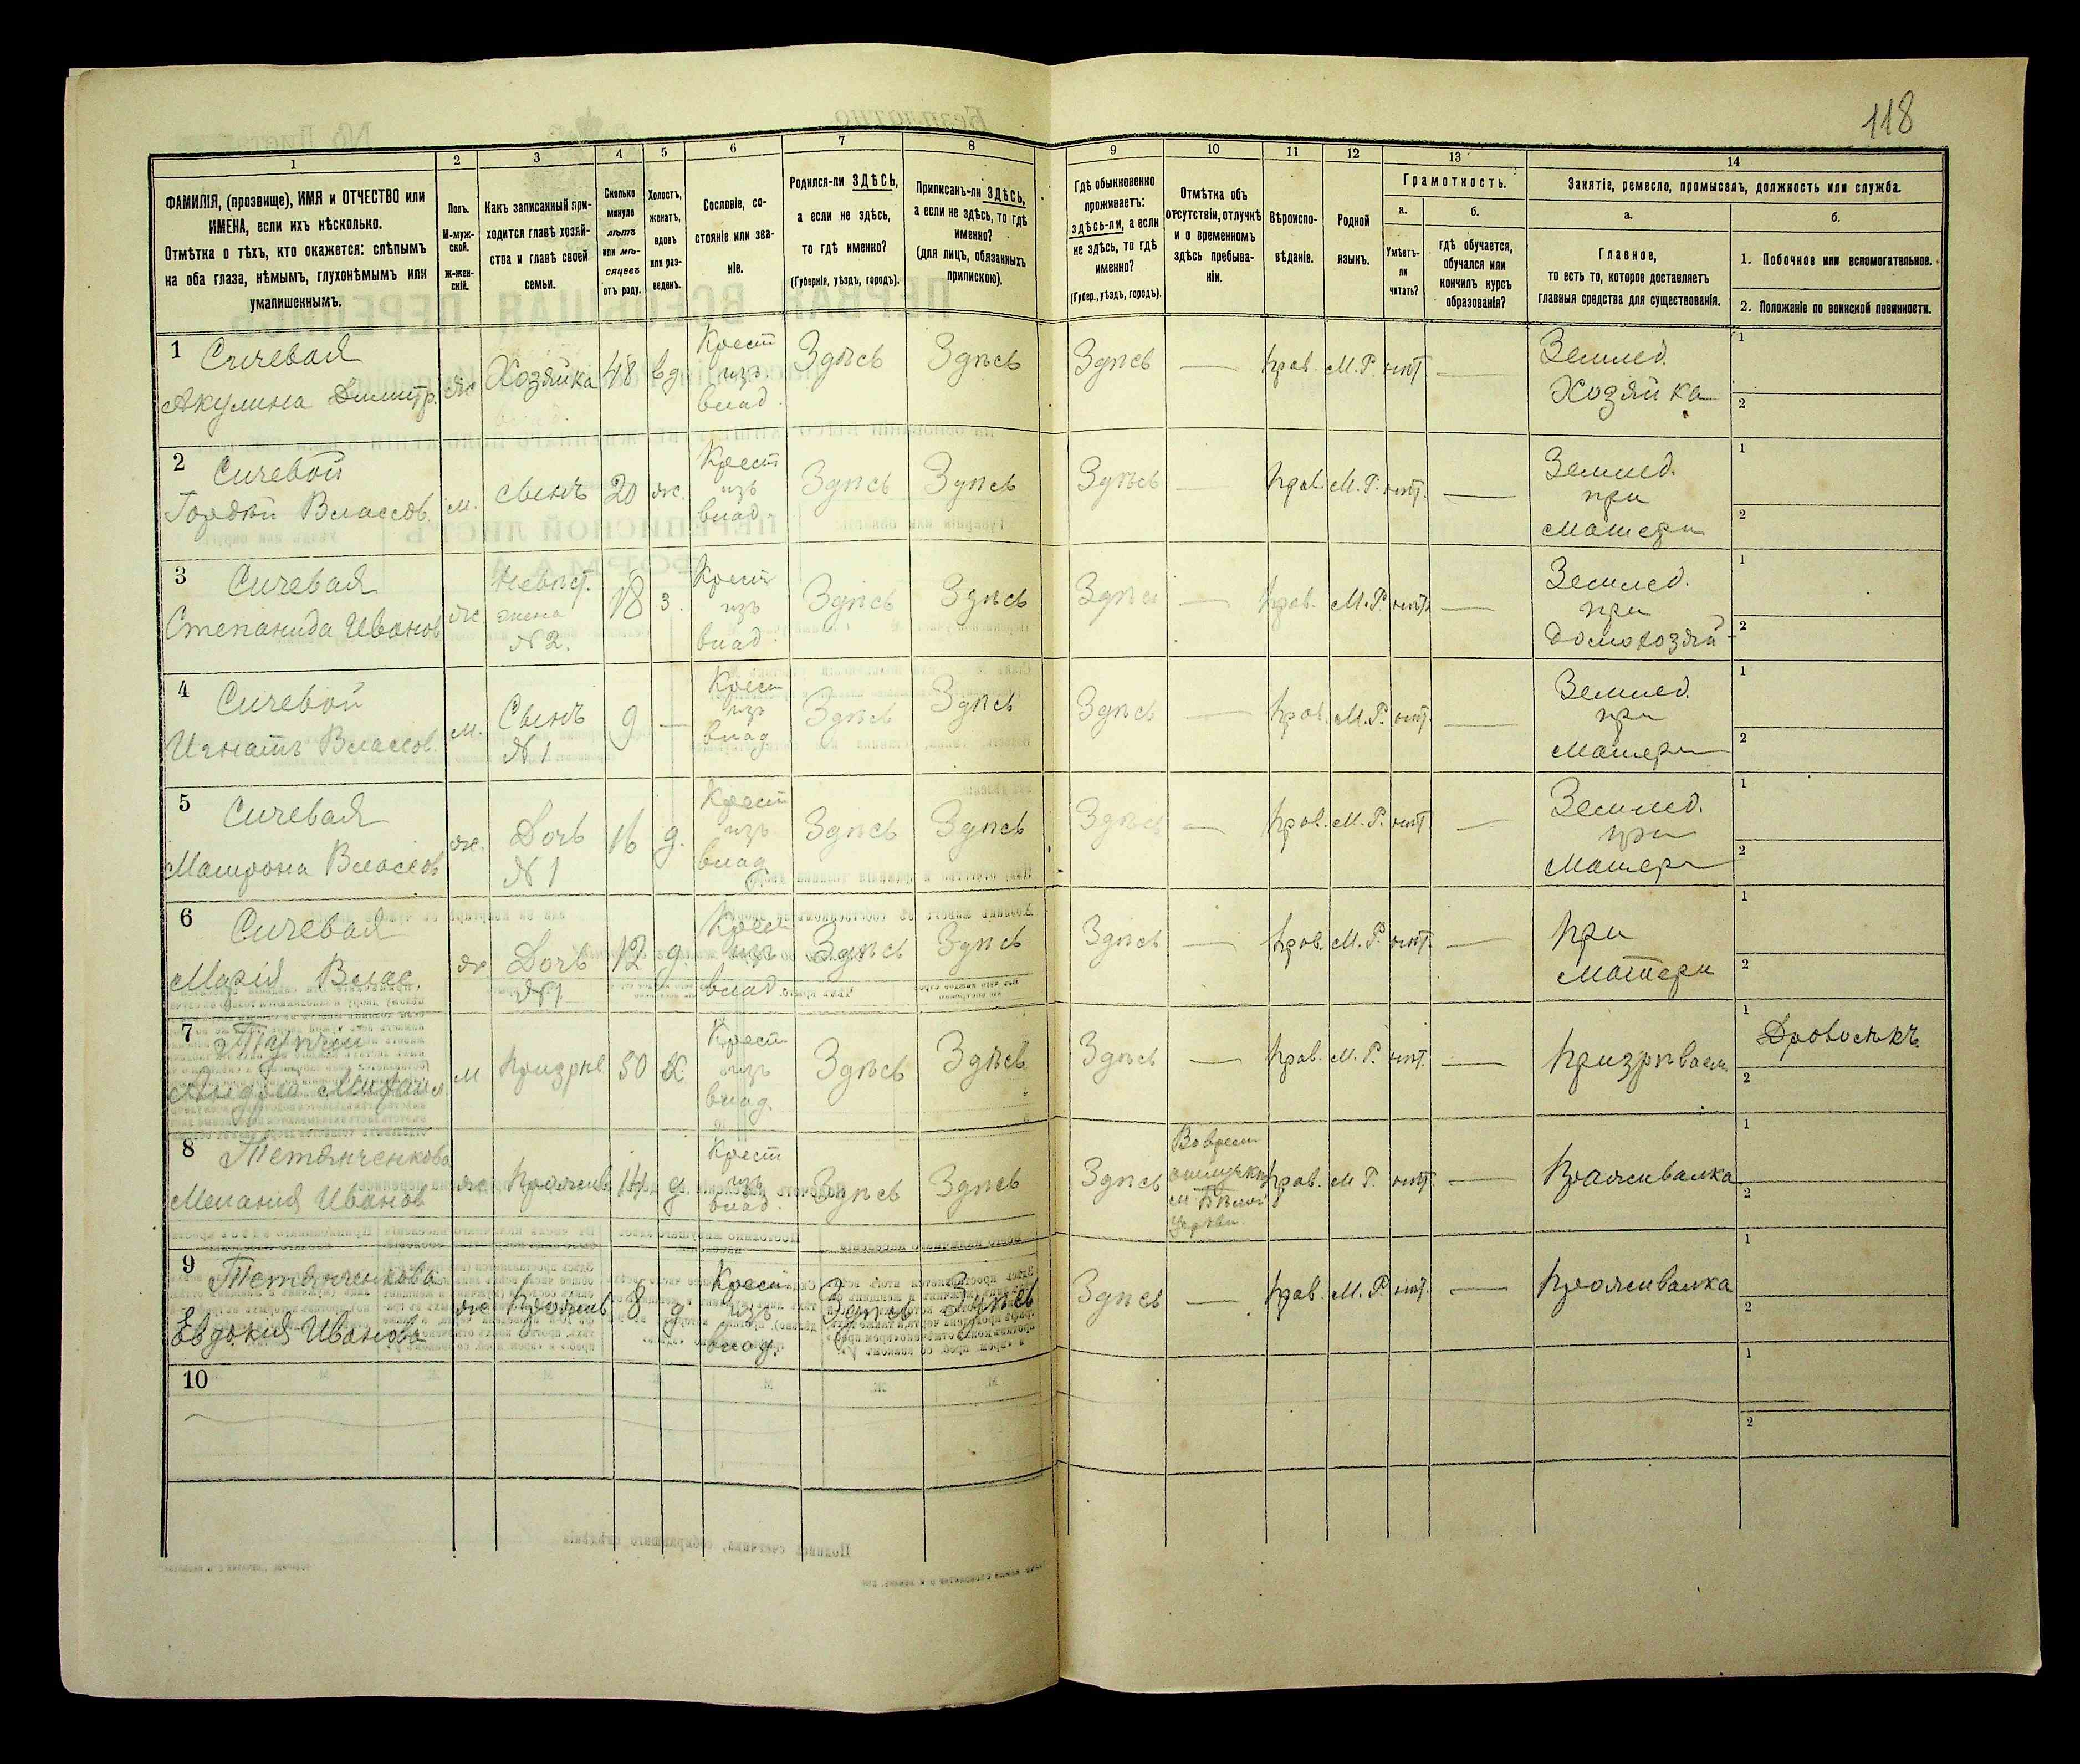 118
1 2 3 4 5 6 7 8 9 10 11 12 13 14
ФАМИЛІЯ, (прозвище), ИМЯ и ОТЧЕСТВО или
ИМЕНА, если ихъ нѣсколько.
Отмѣтка о тѣхъ, кто окажется: слѣпымъ
на оба глаза, нѣмымъ, глухонѣмымъ или
умалишеннымъ.
Полъ.
М-муж-
ской.
Ж-жен-
скій.
Какъ записанный при-
ходится главѣ хозяй-
ства и главѣ своей
семьи.
Сколько
минуло
лѣтъ
или мѣ-
сяцевъ
отъ роду.
Холостъ,
женатъ,
вдовъ
или раз-
веденъ.
Сословіе, со-
стояніе или зва-
ніе.
Родился-ли ЗДѢСЬ,
а если не здѣсь,
то гдѣ именно?
(Губернія, уѣздъ, городъ).
Приписанъ-ли ЗДѢСЬ,
а если не здѣсь, то гдѣ
именно?
(для лицъ, обязанныхъ
припискою).
Гдѣ обыкновенно
проживаетъ:
здѣсь-ли, а если
не здѣсь, то гдѣ
именно?
(Губер., уѣздъ, городъ).
Отмѣтка объ
отсутствіи, отлучкѣ
и о временномъ
здѣсь пребыва-
ніи.
Вѣроиспо-
вѣданіе.
Родной
языкъ.
Грамотность.
а.
Умѣетъ-
ли
читать?
б.
гдѣ обучается,
обучался или
кончилъ курсъ
образованія?
Занятіе, ремесло, промыселъ, должность или служба.
а.
Главное,
то есть то, которое доставляетъ
главныя средства для существованія.
б.
1. Побочное или вспомогательное.
2. Положеніе по воинской повинности.
1 Сичевая
Акулина Димитр. ж Хозяйка 48 вд. Крест изъ влад. Здѣсь Здѣсь Здѣсь — прав. М.Р. нѣт — Землед. Хозяйка 1 2
2 Сичевой
Гордѣй Власов. м. сынъ 20 ж. Крест изъ влад. Здѣсь Здѣсь Здѣсь — прав. М.Р. нѣт. — Землед. при матери 1 2
3 Сичевая
Степанида Иванов ж Невѣст. жена №2. 18 з. Крест изъ влад. Здѣсь Здѣсь Здѣсь — прав. М.Р. нѣт. — Землед. при домохозяй- 1 2
4 Сичевой
Игнатъ Власов. м. Сынъ №1 9 — Крест изъ влад Здѣсь Здѣсь Здѣсь — прав. М.Р. нѣт. — Землед. при матери 1 2
5 Сичевая
Матрона Власов ж. Дочь №1 16 д. Крест изъ влад. Здѣсь Здѣсь Здѣсь — прав. М.Р. нѣт — Землед. при матери 1 2
6 Сичевая
Марія Влас. ж. Дочь №1. 12 д. Крест изъ влад Здѣсь Здѣсь Здѣсь — прав. М.Р. нѣт. — при матери 1 2
7
м призрѣв 50 х Крест изъ влад. Здѣсь Здѣсь Здѣсь — прав. М.Р. нѣт. — призрѣваем 1 Дровосѣкъ. 2
8 Тетянченкова
Меланія Иванов ж прожив 14 д Крест изъ влад. Здѣсь Здѣсь Здѣсь Во врем отлучки м Бѣлой Церкви прав. М.Р. нѣт. — проживалка 1 2
9 Тетянченкова
Евдокія Иванова ж прожив 8 д Крест изъ влад. Здѣсь Здѣсь Здѣсь — прав. М.Р. нѣт. — проживалка 1 2
10 1 2